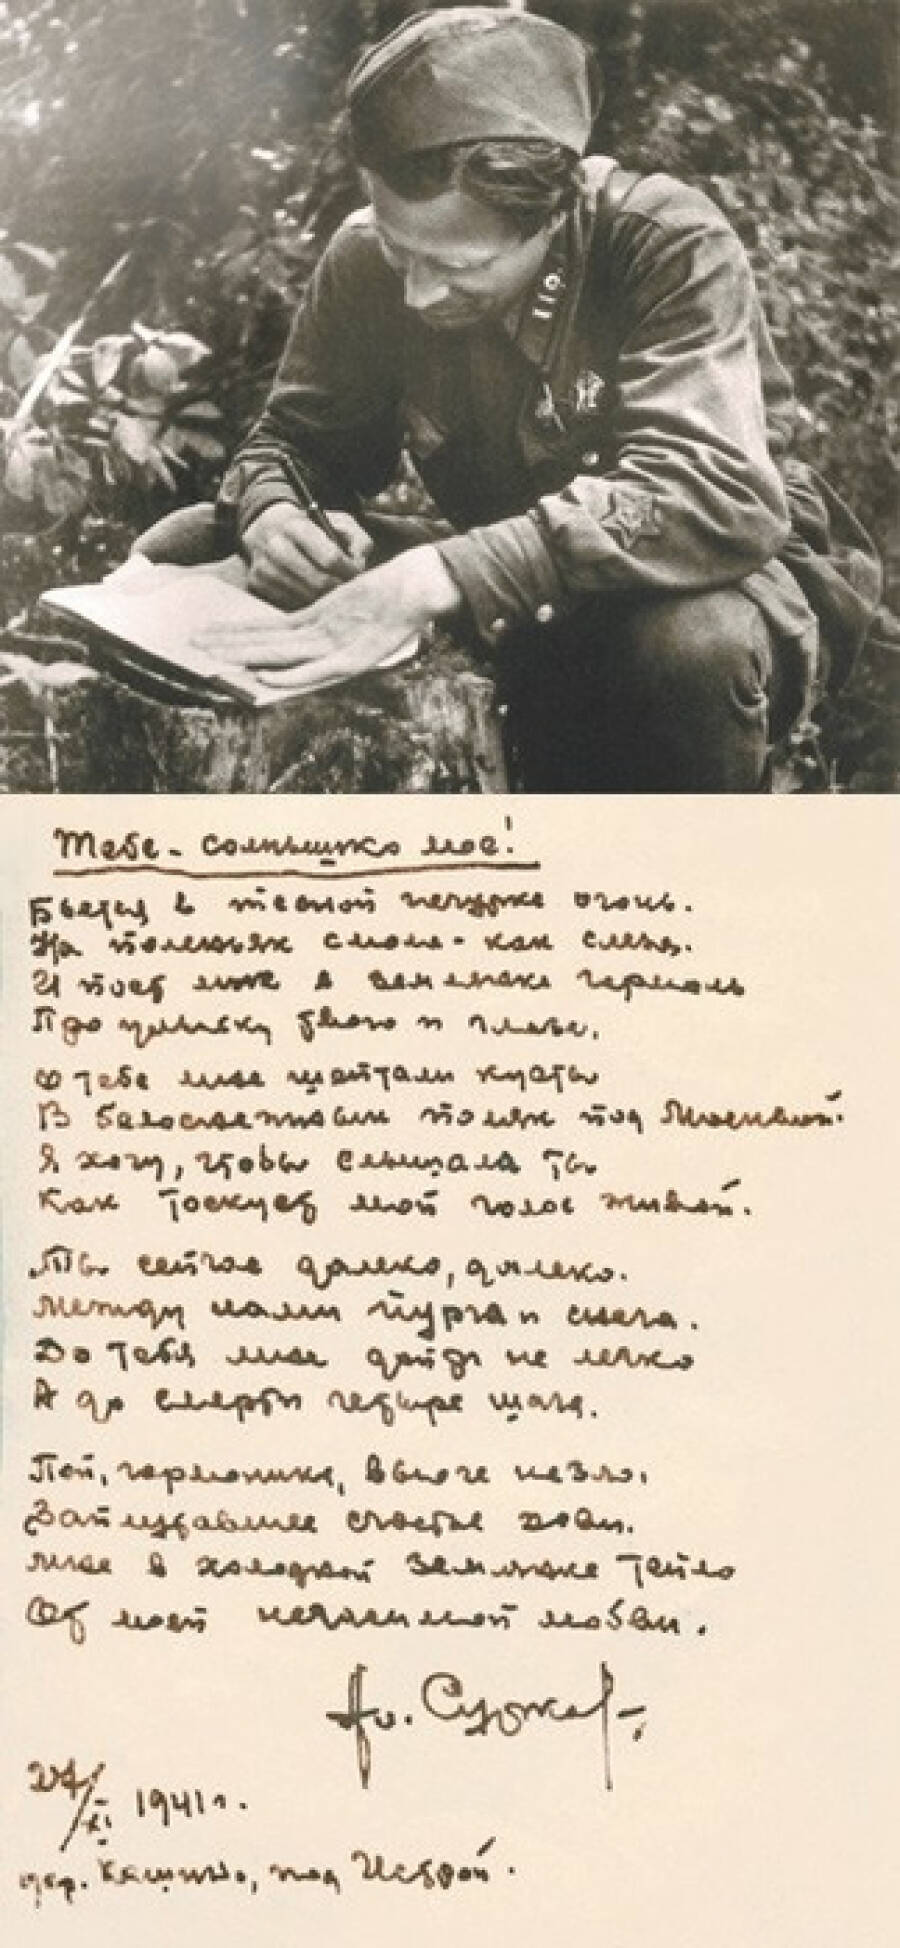 Тебе - солнышко мое!
Бьется в тесной печурке огонь.
На поленьях смола - как слеза.
И поет мне в землянке гармонь
Про улыбку твою и глаза.
О тебе мне шептали кусты
В белоснежных полях под Москвой.
Я хочу, чтобы слышала ты
Как тоскует мой голос живой.
Ты сейчас далеко, далеко.
Между нами пурга и снега.
До тебя мне дойти не легко
А до смерти четыре шага.
Пой, гармоника, вьюге назло.
Заплутавшее счастье зови.
Мне в холодной землянке тепло
От моей негасимой любви.
Ал. Сурков
XI 1941 г.
дер. Кашино, под Истрой.